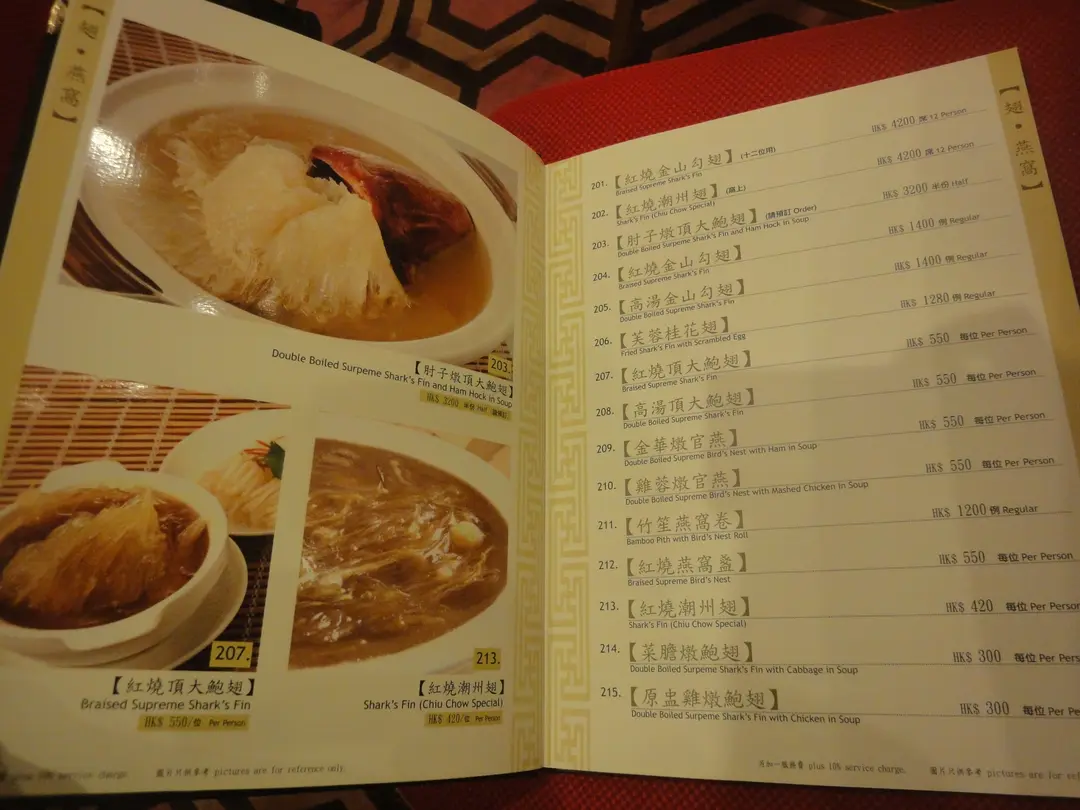 【翅・燕窩】
【肘子燉頂大鮑翅】
203.
Double Boiled Surpeme Shark's Fin and Ham Hock in Soup
HK$ 3200 半份 Half 請預訂
207.
【紅燒頂大鮑翅】
Braised Supreme Shark's Fin
HK$ 550/位 Per Person
213.
【紅燒潮州翅】
Shark's Fin (Chiu Chow Special)
HK$ 420/位 Per Person
plus 10% service charge.
圖片只供參考 pictures are for reference only.
【翅・燕窩】
201.【紅燒金山勾翅】(十二位用) HK$ 4200 席 12 Person
Braised Supreme Shark's Fin
202.【紅燒潮州翅】(同上) HK$ 4200 席 12 Person
Shark's Fin (Chiu Chow Special)
203.【肘子燉頂大鮑翅】(請預訂 Order) HK$ 3200 半份 Half
Double Boiled Surpeme Shark's Fin and Ham Hock in Soup
204.【紅燒金山勾翅】 HK$ 1400 例 Regular
Braised Supreme Shark's Fin
205.【高湯金山勾翅】 HK$ 1400 例 Regular
Double Boiled Supreme Shark's Fin
206.【芙蓉桂花翅】 HK$ 1280 例 Regular
Fried Shark's Fin with Scrambled Egg
207.【紅燒頂大鮑翅】 HK$ 550 每位 Per Person
Braised Supreme Shark's Fin
208.【高湯頂大鮑翅】 HK$ 550 每位 Per Person
Double Boiled Supreme Shark's Fin
209.【金華燉官燕】 HK$ 550 每位 Per Person
Double Boiled Supreme Bird's Nest with Ham in Soup
210.【雞蓉燉官燕】 HK$ 550 每位 Per Person
Double Boiled Supreme Bird's Nest with Mashed Chicken in Soup
211.【竹笙燕窩卷】 HK$ 1200 例 Regular
Bamboo Pith with Bird's Nest Roll
212.【紅燒燕窩盞】 HK$ 550 每位 Per Person
Braised Supreme Bird's Nest
213.【紅燒潮州翅】 HK$ 420 每位 Per Person
Shark's Fin (Chiu Chow Special)
214.【菜膽燉鮑翅】 HK$ 300 每位 Per Pers
Double Boiled Surpeme Shark's Fin with Cabbage in Soup
215.【原盅雞燉鮑翅】 HK$ 300 每位 Per Pe
Double Boiled Surpeme Shark's Fin with Chicken in Soup
另加一服務費 plus 10% service charge. 圖片只供參考 pictures are for refe